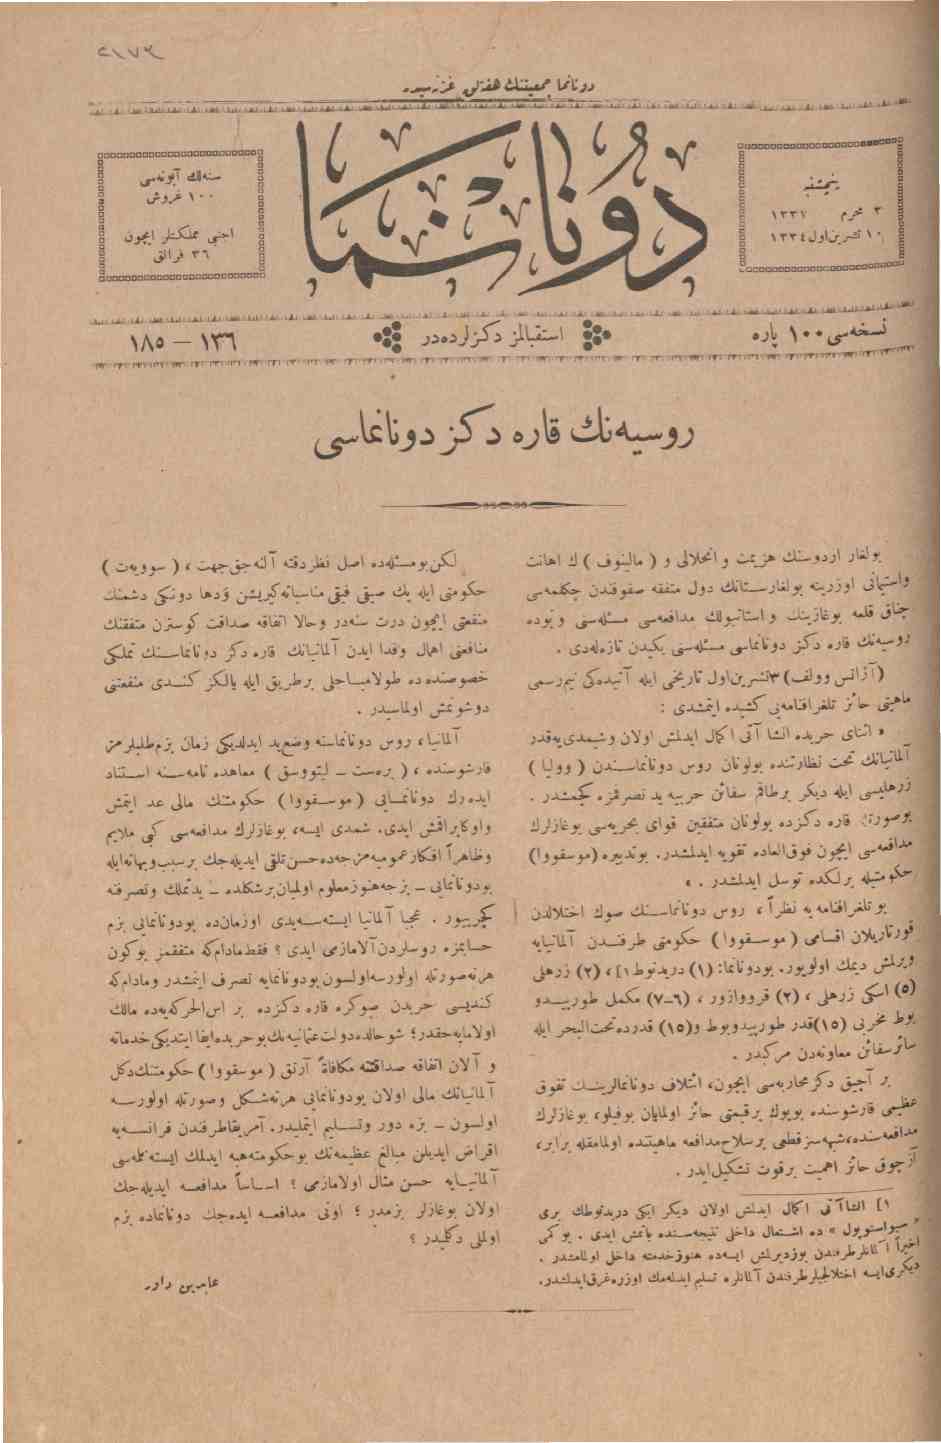 ٢١٧٣
دونانما جمعيتنك هفته‌لق غزته‌سيدر
پنجشنبه
٣ محرم ١٣٣٧
١٠ تشرين‌اول ١٣٣٤
دونانما
سنه‌لك آبونه‌سی
١٠٠ غروش
اجنبی مملكتلر ايچون
٢٦ فرانق
نسخه‌سی ١٠٠ پاره
استقبالمز دكزلرده‌در
١٣٦ — ١٨٥
روسيه‌نك قاره دكز دونانماسی
بولغار اردوسنك هزيمت و انحلالی و ( مالينوف ) ك اهانت
واستيمانی اوزرينه بولغارستانك دول متفقه صفوفندن چكلمه‌سی
چناق قلعه بوغازينك و استانبولك مدافعه‌سی مسئله‌سنی و بوده
روسيه‌نك قاره دكز دونانماسی مسئله‌سنی يكيدن تازه‌له‌دی .
(آژانس وولف) ٣ تشرين‌اول تاريخی ايله آتيده‌كی نيم‌رسمی
ماهيتی حائز تلغرافنامه‌يی كشيده ايتمشدی :
« اثنای حربده انشا آتی اكمال ايدلمش اولان وشيمدی‌يه‌قدر
آلمانيانك تحت نظارتنده بولونان روس دونانماسندن ( ووليا )
زرهليسی ايله ديكر برطاقم سفائن حربيه يد تصرفمزه كچمشدر .
بوصورتله قاره دكزده بولونان متفقين قوای بحريه‌سی بوغازلرك
مدافعه‌سی ايچون فوق‌العاده تقويه ايدلمشدر . بوتدبيره (موسقووا)
حكومتيله برلكده توسل ايدلمشدر . »
بو تلغرافنامه‌يه نظراً ، روس دونانماسنك صوك اختلالدن
قورتاريلان اقسامی (موسقووا) حكومتی طرفندن آلمانيايه
ويرلمش ديمك اولويور. بودونانما: (١) دريدنوط [١ ، (٢) زرهلی
(٥) اسكی زرهلی ، (٢) قرووازور ، (٦-٧) مكمل طورپيدو
بوط مخربی (١٥) قدر طورپيدوبوط و(١٥) قدرده تحت‌البحر ايله
سائر سفائن معاونه‌دن مركبدر .
بر آچيق دكز محاربه‌سی ايچون، ائتلاف دونانمالرينك تفوق
عظيمی قارشوسنده بويوك برقيمتی حائز اولمايان بوفيلو، بوغازلرك
مدافعه‌سنده، شبهه‌سز قطعی برسلاح مدافعه ماهيتنده اولمامقله برابر،
آز چوق حائز اهميت برقوت تشكيل‌ايدر .
[١ انشاآتی اكمال ايدلمش اولان ديكر ايكی دريدنوطك بری
« سيواستوپول » ده اشتعال داخلی نتيجه‌سنده باتمش ايدی . بوكمی
اخيراً آلمانلر طرفندن يوزديرلمش ايسه‌ده هنوز خدمته داخل اولمامشدر .
ديكری ايسه اختلالجيلر طرفندن آلمانلره تسليم ايدلمه‌مك اوزره غرق ايدلمشدر.
لكن بومسئله‌ده اصل نظر دقته آلنه‌جق جهت ، ( سوويه‌ت )
حكومتی ايله پك صيقی فيقی مناسباته كيريشن و دها دونكی دشمنك
منفعتی ايچون درت سنه‌در وحالا اتفاقه صداقت كوسترن متفقنك
منافعنی اهمال وفدا ايدن آلمانيانك قاره دكز دونانماسنك تملكی
خصوصنده ده طولامباجلی برطريق ايله يالكز كندی منفعتنی
دوشونمش اولماسيدر .
آلمانيا ، روس دونانماسنه وضع‌يد ايدلديكی زمان بزم طلبلرمز
قارشوسنده ، ( بره‌ست – ليتووسق ) معاهده نامه‌سنه استناد
ايده‌رك دونانمايی (موسقووا) حكومتنك مالی عد ايتمش
واوكا براقمش ايدی. شمدی ايسه، بوغازلرك مدافعه‌سی كبی ملايم
وظاهراً افكار عموميه‌مزجه‌ده حسن تلقی ايديله‌جك برسبب وبهانه ايله
بودونانمايی – بزجه هنوز معلوم اولميان برشكلده – يد تملك وتصرفنه
كچيرييور . عجبا آلمانيا ايسته‌سه‌يدی اوزمان‌ده بودونانمايی بزم
حسابمزه روسلردن آلامازمی ايدی ؟ فقط مادام‌كه متفقمز بوكون
هرنه‌صورتله اولورسه اولسون بودونانمايه تصرف ايتمشدر ومادام‌كه
كنديسی حربدن صوكره قاره دكزده بر اس‌الحركه‌يه‌ده مالك
اولامايه‌جقدر ؛ شو حالده دولت عثمانيه‌نك بو حربده ايفا ايتديكی خدماته
و آلان اتفاقه صداقتنه مكافاةً آرتق (موسقووا) حكومتنك دكل
آلمانيانك مالی اولان بودونانمايی هرنه‌شكل وصورتله اولورسه
اولسون – بزه دور وتسليم ايتمليدر. آمريقا طرفندن فرانسه‌يه
اقراض ايديلن مبالغ عظيمه‌نك بوحكومته هبه ايدلمك ايستنلمه‌سی
آلمانيايه حسن مثال اولامازمی ؟ اساساً مدافعه ايديله‌جك
اولان بوغازلر بزمدر ؛ اونی مدافعه ايده‌جك دونانماده بزم
اولملی دكليدر ؟
عابدين داور